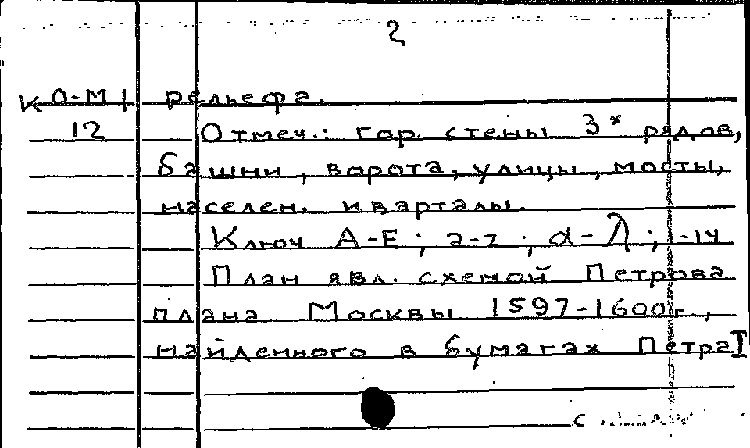 2
К О-М 1 рельефа.
12 Отмеч.: гор. стены 3х рядов,
башни, ворота, улицы, мосты,
населен. кварталы.
Ключ А-Е; a-z; α-λ; 1-14
План явл. схемой Петрова
плана Москвы 1597-1600г.,
найденного в бумагах Петра I